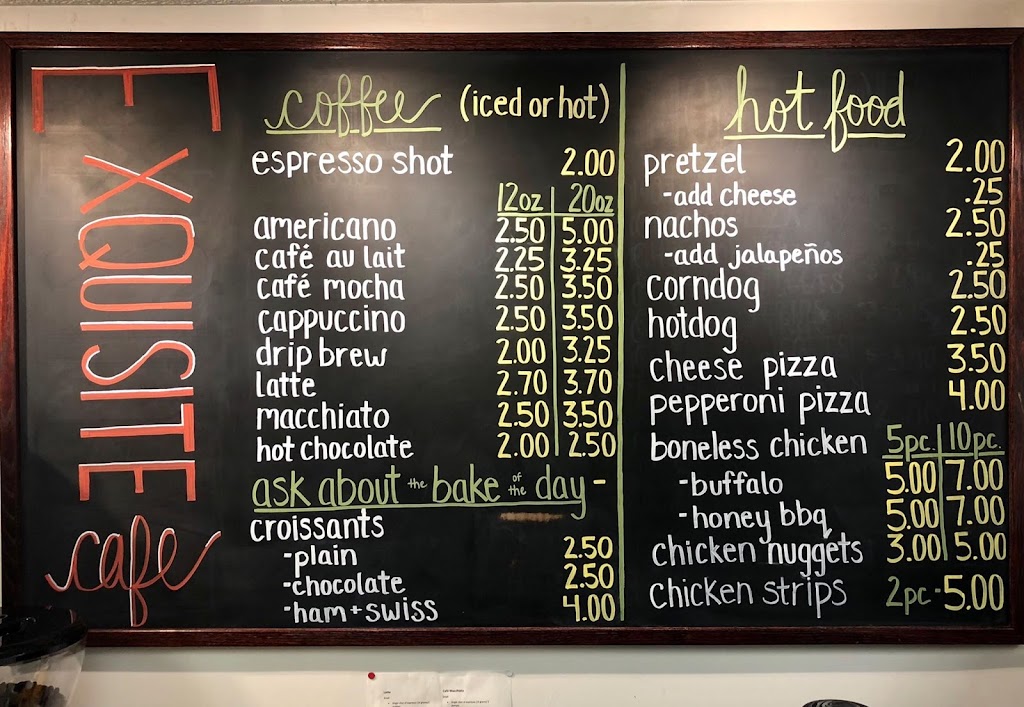 EXQUISITE
cafe
coffee (iced or hot)
espresso shot 2.00
12oz 20oz
americano 2.50 5.00
café au lait 2.25 3.25
café mocha 2.50 3.50
cappuccino 2.50 3.50
drip brew 2.00 3.25
latte 2.70 3.70
macchiato 2.50 3.50
hot chocolate 2.00 2.50
ask about the bake of the day -
croissants
-plain 2.50
-chocolate 2.50
-ham + swiss 4.00
hot food
pretzel 2.00
-add cheese .25
nachos 2.50
-add jalapeños .25
corndog 2.50
hotdog 2.50
cheese pizza 3.50
pepperoni pizza 4.00
boneless chicken 5pc. 10pc.
-buffalo 5.00 7.00
-honey bbq 5.00 7.00
chicken nuggets 3.00 5.00
chicken strips 2pc - 5.00